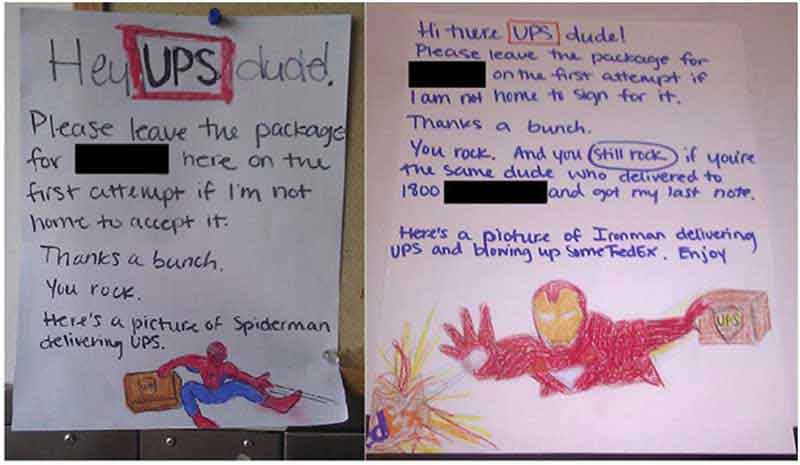 Hey UPS dude!
Please leave the package
for here on the
first attempt if I'm not
home to accept it.
Thanks a bunch.
You rock.
Here's a picture of Spiderman
delivering UPS.
UPS
Hi there UPS dude!
Please leave the package for
on the first attempt if
I am not home to sign for it.
Thanks a bunch.
You rock. And you still rock if you're
the same dude who delivered to
1800 and got my last note.
Here's a picture of Ironman delivering
UPS and blowing up some FedEx. Enjoy
UPS
dEx